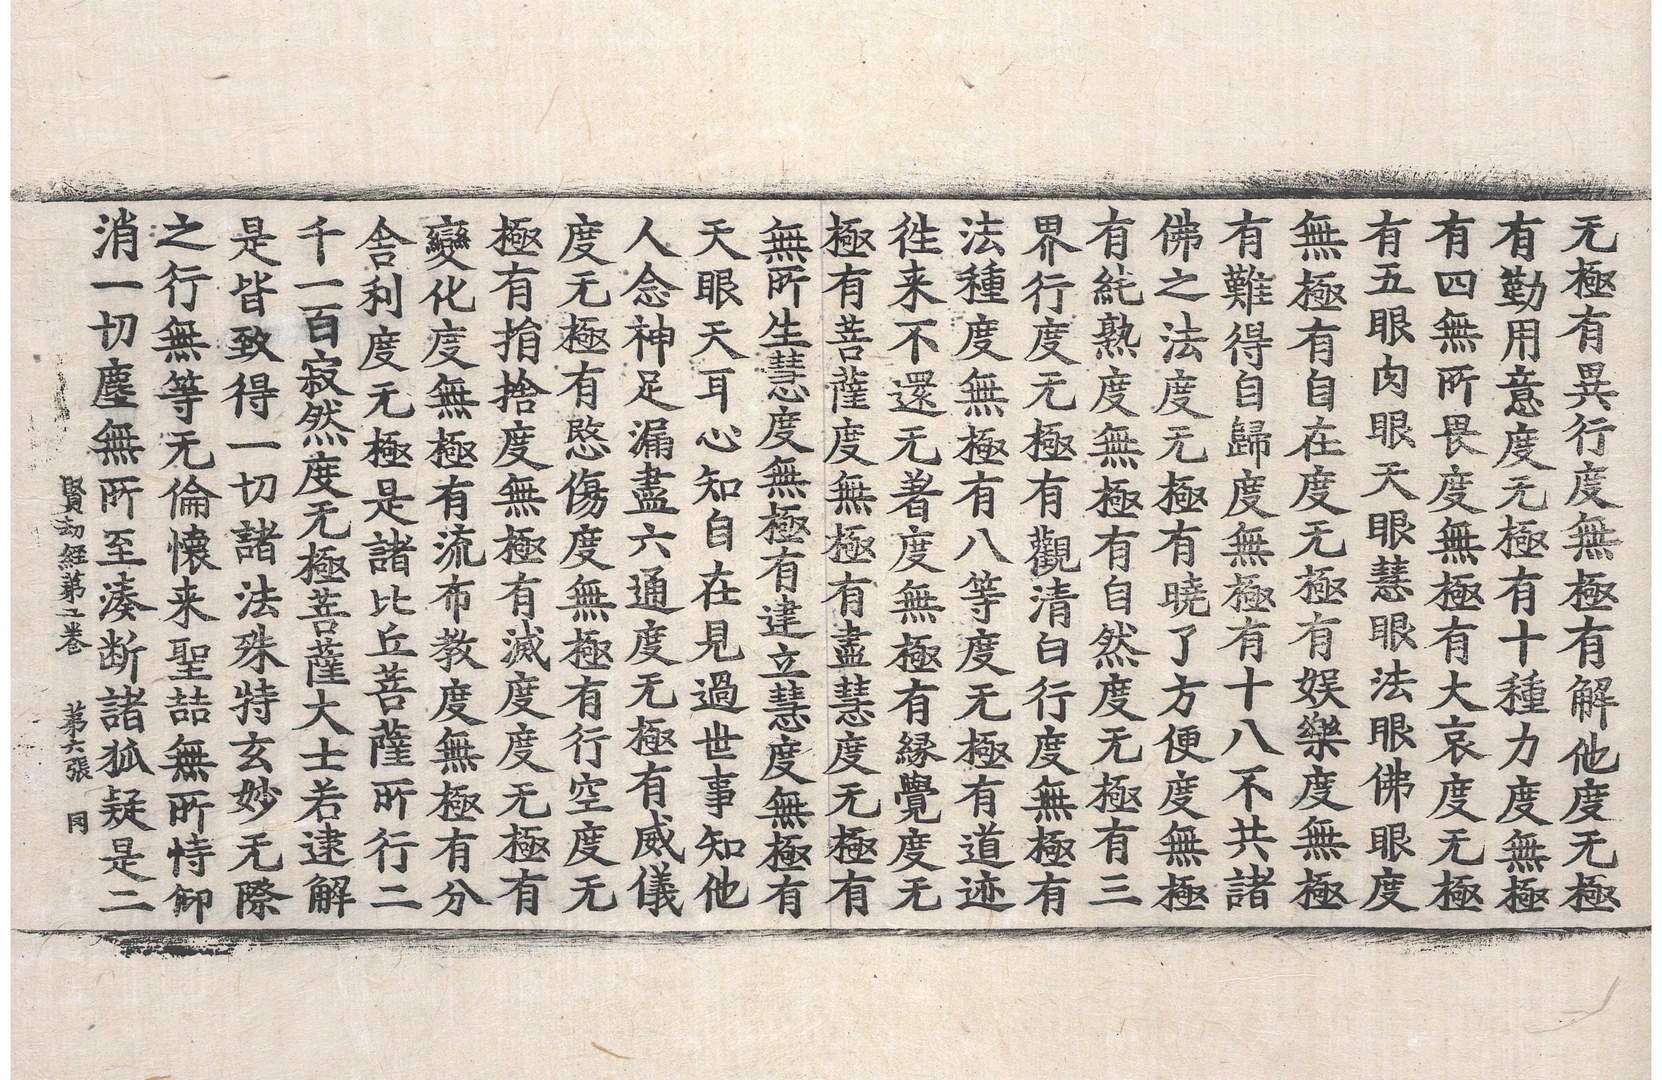 无極有異行度無極有解他度无極
有勤用意度无極有十種力度無極
有四無所畏度無極有大哀度无極
有五眼肉眼天眼慧眼法眼佛眼度
無極有自在度无極有娛樂度無極
有難得自歸度無極有十八不共諸
佛之法度无極有曉了方便度無極
有純熟度無極有自然度无極有三
界行度无極有觀清白行度無極有
法種度無極有八等度无極有道迹
徃来不還无著度無極有縁覺度无
極有菩薩度無極有盡慧度无極有
無所生慧度無極有建立慧度無極有
天眼天耳心知自在見過世事知他
人念神足漏盡六通度无極有威儀
度无極有愍傷度無極有行空度无
極有捐捨度無極有滅度度无極有
變化度無極有流布教度無極有分
舍利度无極是諸比丘菩薩所行二
千一百寂然度无極菩薩大士若逮解
是皆致得一切諸法殊特玄妙无際
之行無等无倫懷来聖喆無所恃仰
消一切塵無所至湊断諸狐疑是二
賢劫經第二卷 第六張 同